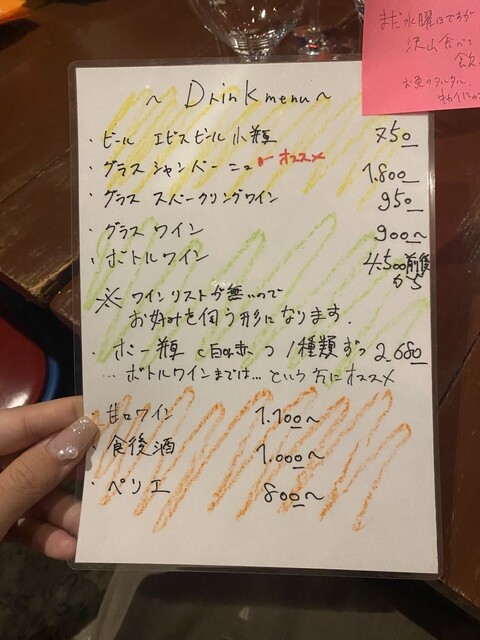 まだ水曜日ですが
沢山食べて
飲
~ Drink menu ~
・ビール エビスビール小瓶 750
・グラスシャンパーニュ ←オススメ 1.800
・グラス スパークリングワイン 950
・グラスワイン 900~
・ボトルワイン 4.500前後から
※ ワインリストが無いので
お好みを伺う形になります.
・ボー瓶 (白or赤 1種類ずつ 2.680
... ボトルワインまでは... という方にオススメ
・甘口ワイン 1.100~
・食後酒 1.000~
・ペリエ 800~